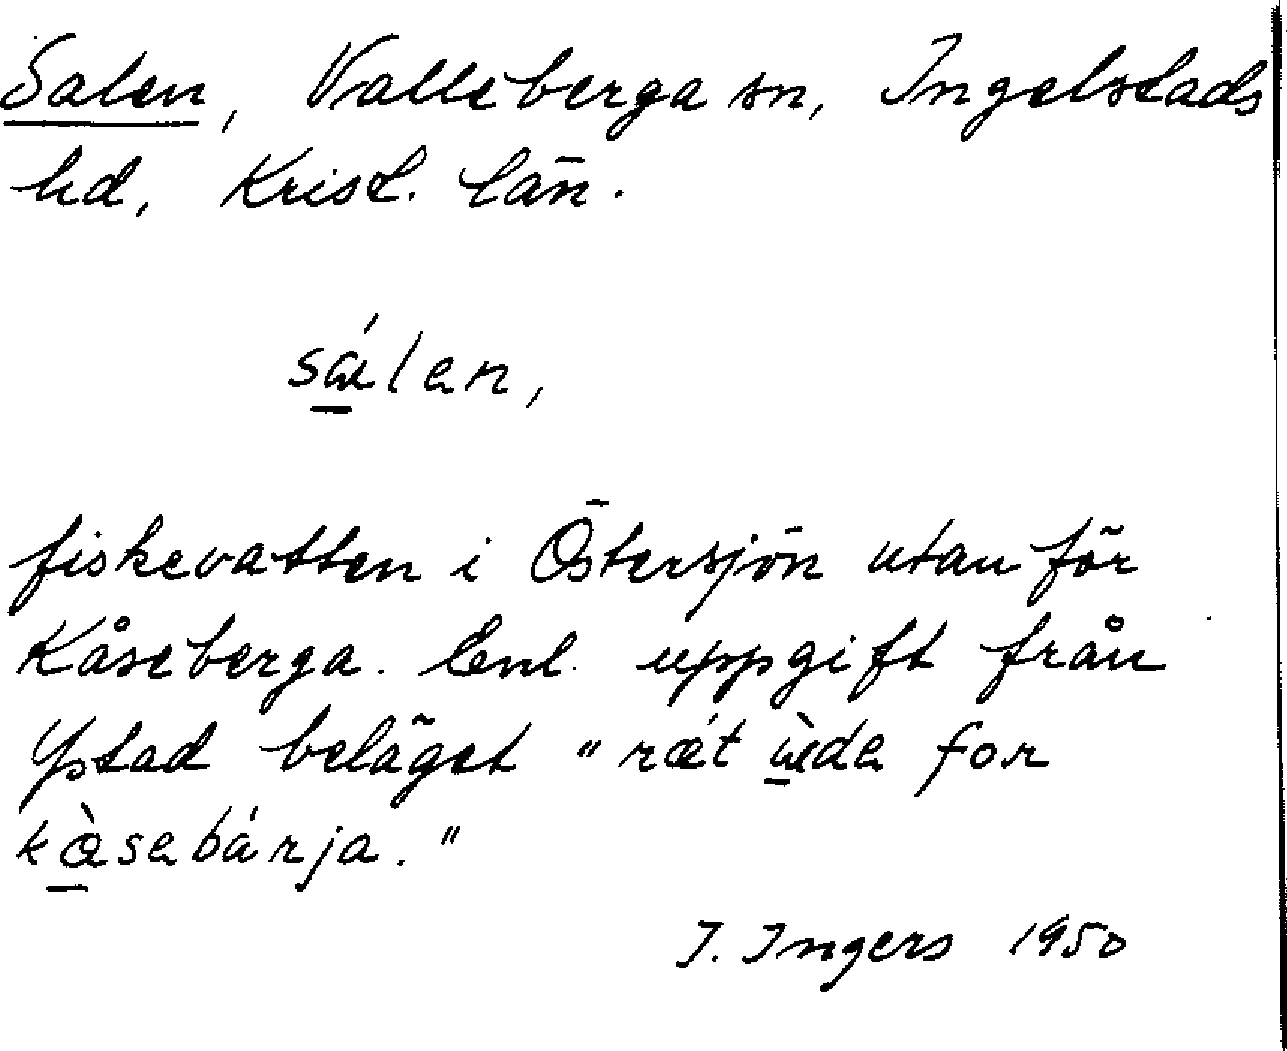 Salen, Valleberga sn, Ingelstads
hd, Krist. län.
sálen,
fiskevatten i Östersjön utanför
Kåseberga. Enl. uppgift från
Ystad beläget "ræt ùde for
kåsebárja."
I. Ingers 1950